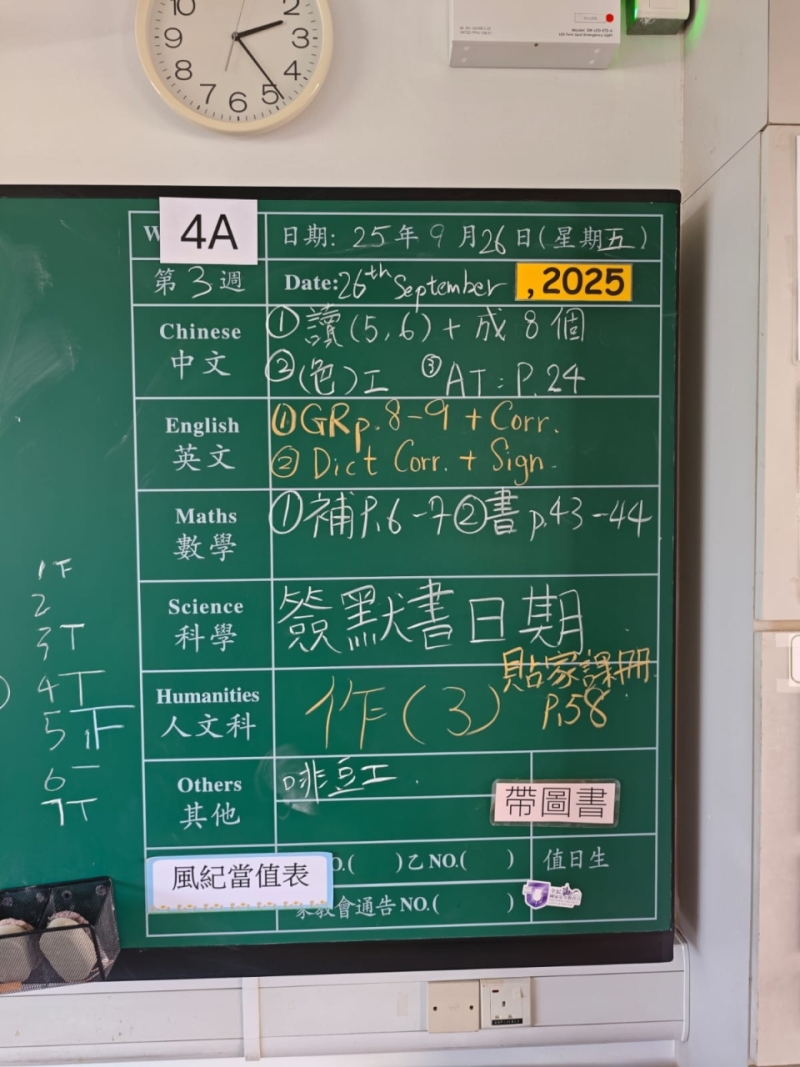 10 2
9 3
8 4
7 6 5
4A
日期: 25年9月26日(星期五)
第3週
Date: 26th September , 2025
Chinese
中文
① 讀(5,6)+成8個
② (色)工 ③ AT: P.24
English
英文
① GR p.8-9 + Corr.
② Dict Corr. + Sign.
Maths
數學
① 補P.6-7 ② 書p.43-44
Science
科學
簽默書日期
Humanities
人文科
作(3)
貼家課冊
P.58
Others
其他
啡豆工.
帶圖書
1F
2
3T
4T
5
6
7T
風紀當值表
O.( )乙NO.( ) 值日生
家教會通告NO.( )